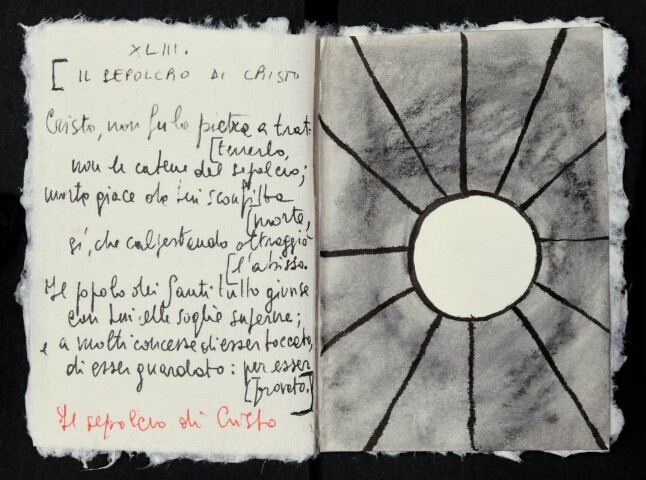 XLIII.
[ IL SEPOLCRO DI CRISTO
Cristo, non fu la pietra a trat-
[tenerlo,
non le catene del sepolcro;
morta giace da lui sconfitta
[morte,
sì, che calpestando oltraggiò
[l'abisso.
Il popolo dei Santi tutto giunse
con lui alle soglie superne;
e a molti concesse di esser toccato,
di esser guardato: per esser
[provato.]
Il sepolcro di Cristo